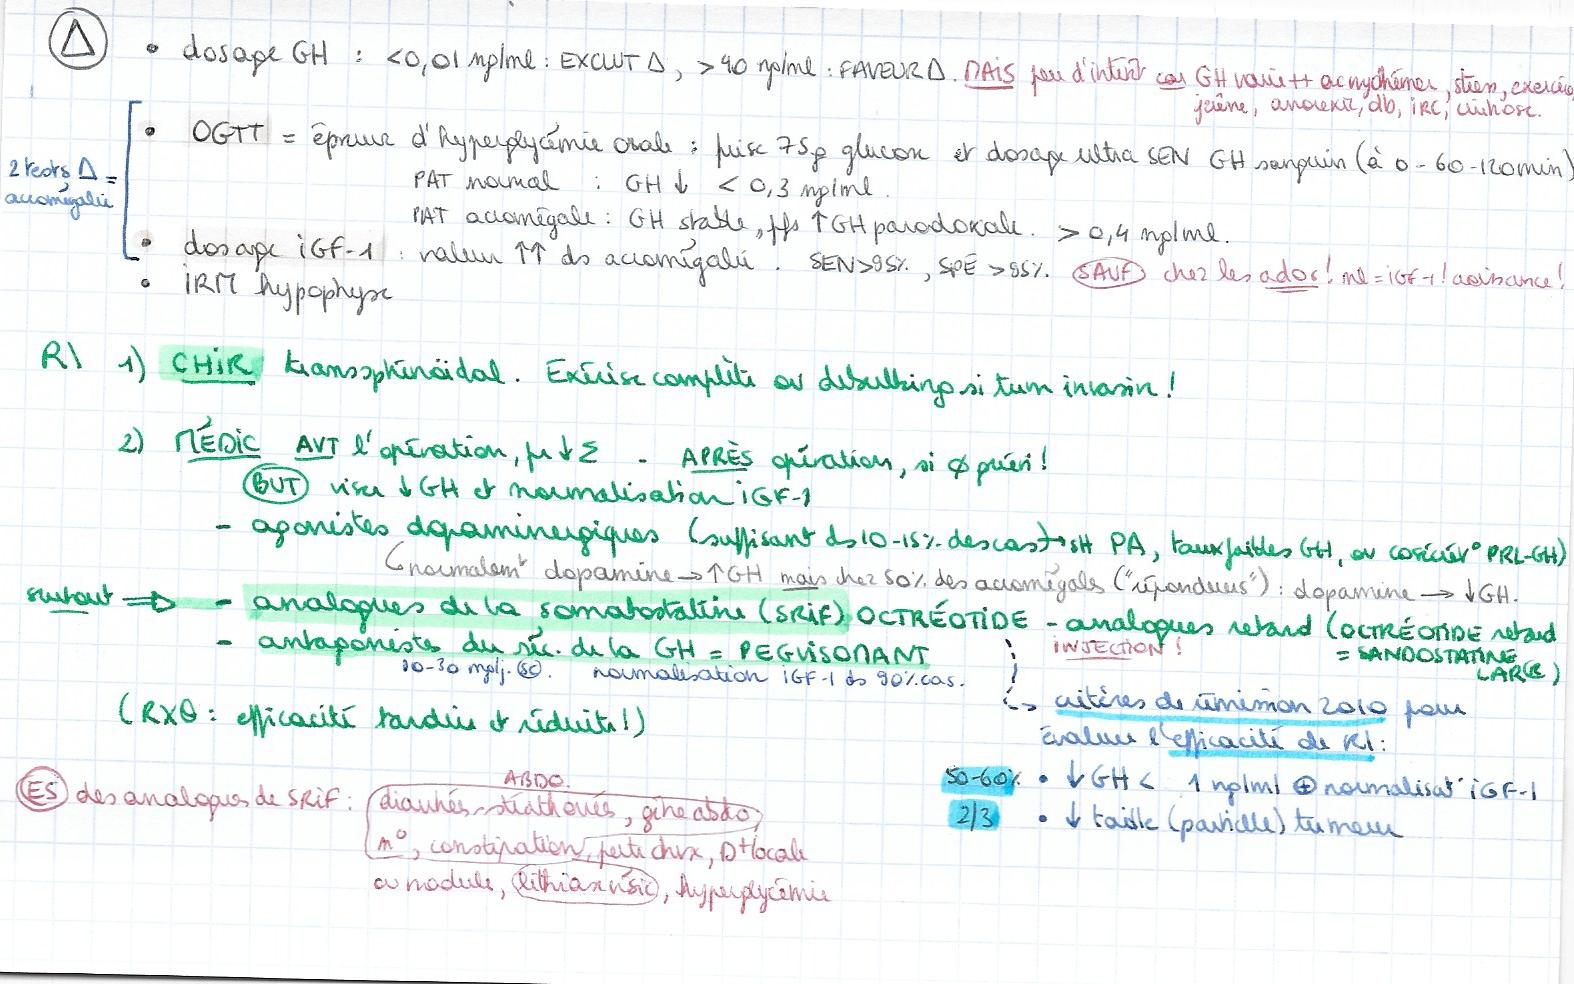 Δ
• dosage GH : <0,01 ng/ml : EXCLUT Δ, > 40 ng/ml : FAVEUR Δ. MAIS peu d'intérêt car GH varie ++ ac nychémer, stress, exercice,
jeûne, anorexie, db, iRC, cirrhose.
2 tests Δ =
acromégalie
• OGTT = épreuve d'hyperglycémie orale : prise 75g glucose et dosage ultra SEN GH sanguin (à 0-60-120min)
PAT normal : GH ↓ < 0,3 ng/ml.
PAT acromégale : GH stable, pfs ↑ GH paradoxale. > 0,4 ng/ml.
• dosage iGF-1 : valeur ↑↑ ds acromégalie. SEN >95%, SPE >95%. SAUF chez les ados ! nl = iGF-1 ! croissance !
• iRM hypophyse
R\ 1) CHiR transsphénoïdal. Exérèse complète ou debulking si tum invasive !
2) MÉDiC AVT l'opération, pr ↓ Σ - APRÈS opération, si ∅ guéri !
BUT viser ↓ GH et normalisation iGF-1
- agonistes dopaminergiques (suffisant ds 10-15% des cas → st PA, taux faibles GH, ou cosécrét° PRL-GH)
(normalemt dopamine → ↑ GH mais chez 50% des acromégales ("répondeurs") : dopamine → ↓ GH.
surtout ⇒ - analogues de la somatostatine (SRiF) OCTRÉOTIDE - analogues retard (OCTRÉOTIDE retard
= SANDOSTATINE
LAR®)
INJECTION !
- antagonistes du réc. de la GH = PEGVISOMANT
10-30 mg/j. (SC) normalisation iGF-1 ds 90% cas.
(RXΘ : efficacité tardive et réduite !)
critères de rémission 2010 pour
évaluer l'efficacité de R\ :
50-60% • ↓ GH < 1 ng/ml ⊕ normalisat° iGF-1
2/3 • ↓ taille (partielle) tumeur
ABDO.
ES des analogues de SRiF : diarrhées, stéatorrhées, gêne abdo,
m°, constipation, perte chvx, D+ locale
ou nodule, lithiase vésic, hyperglycémie